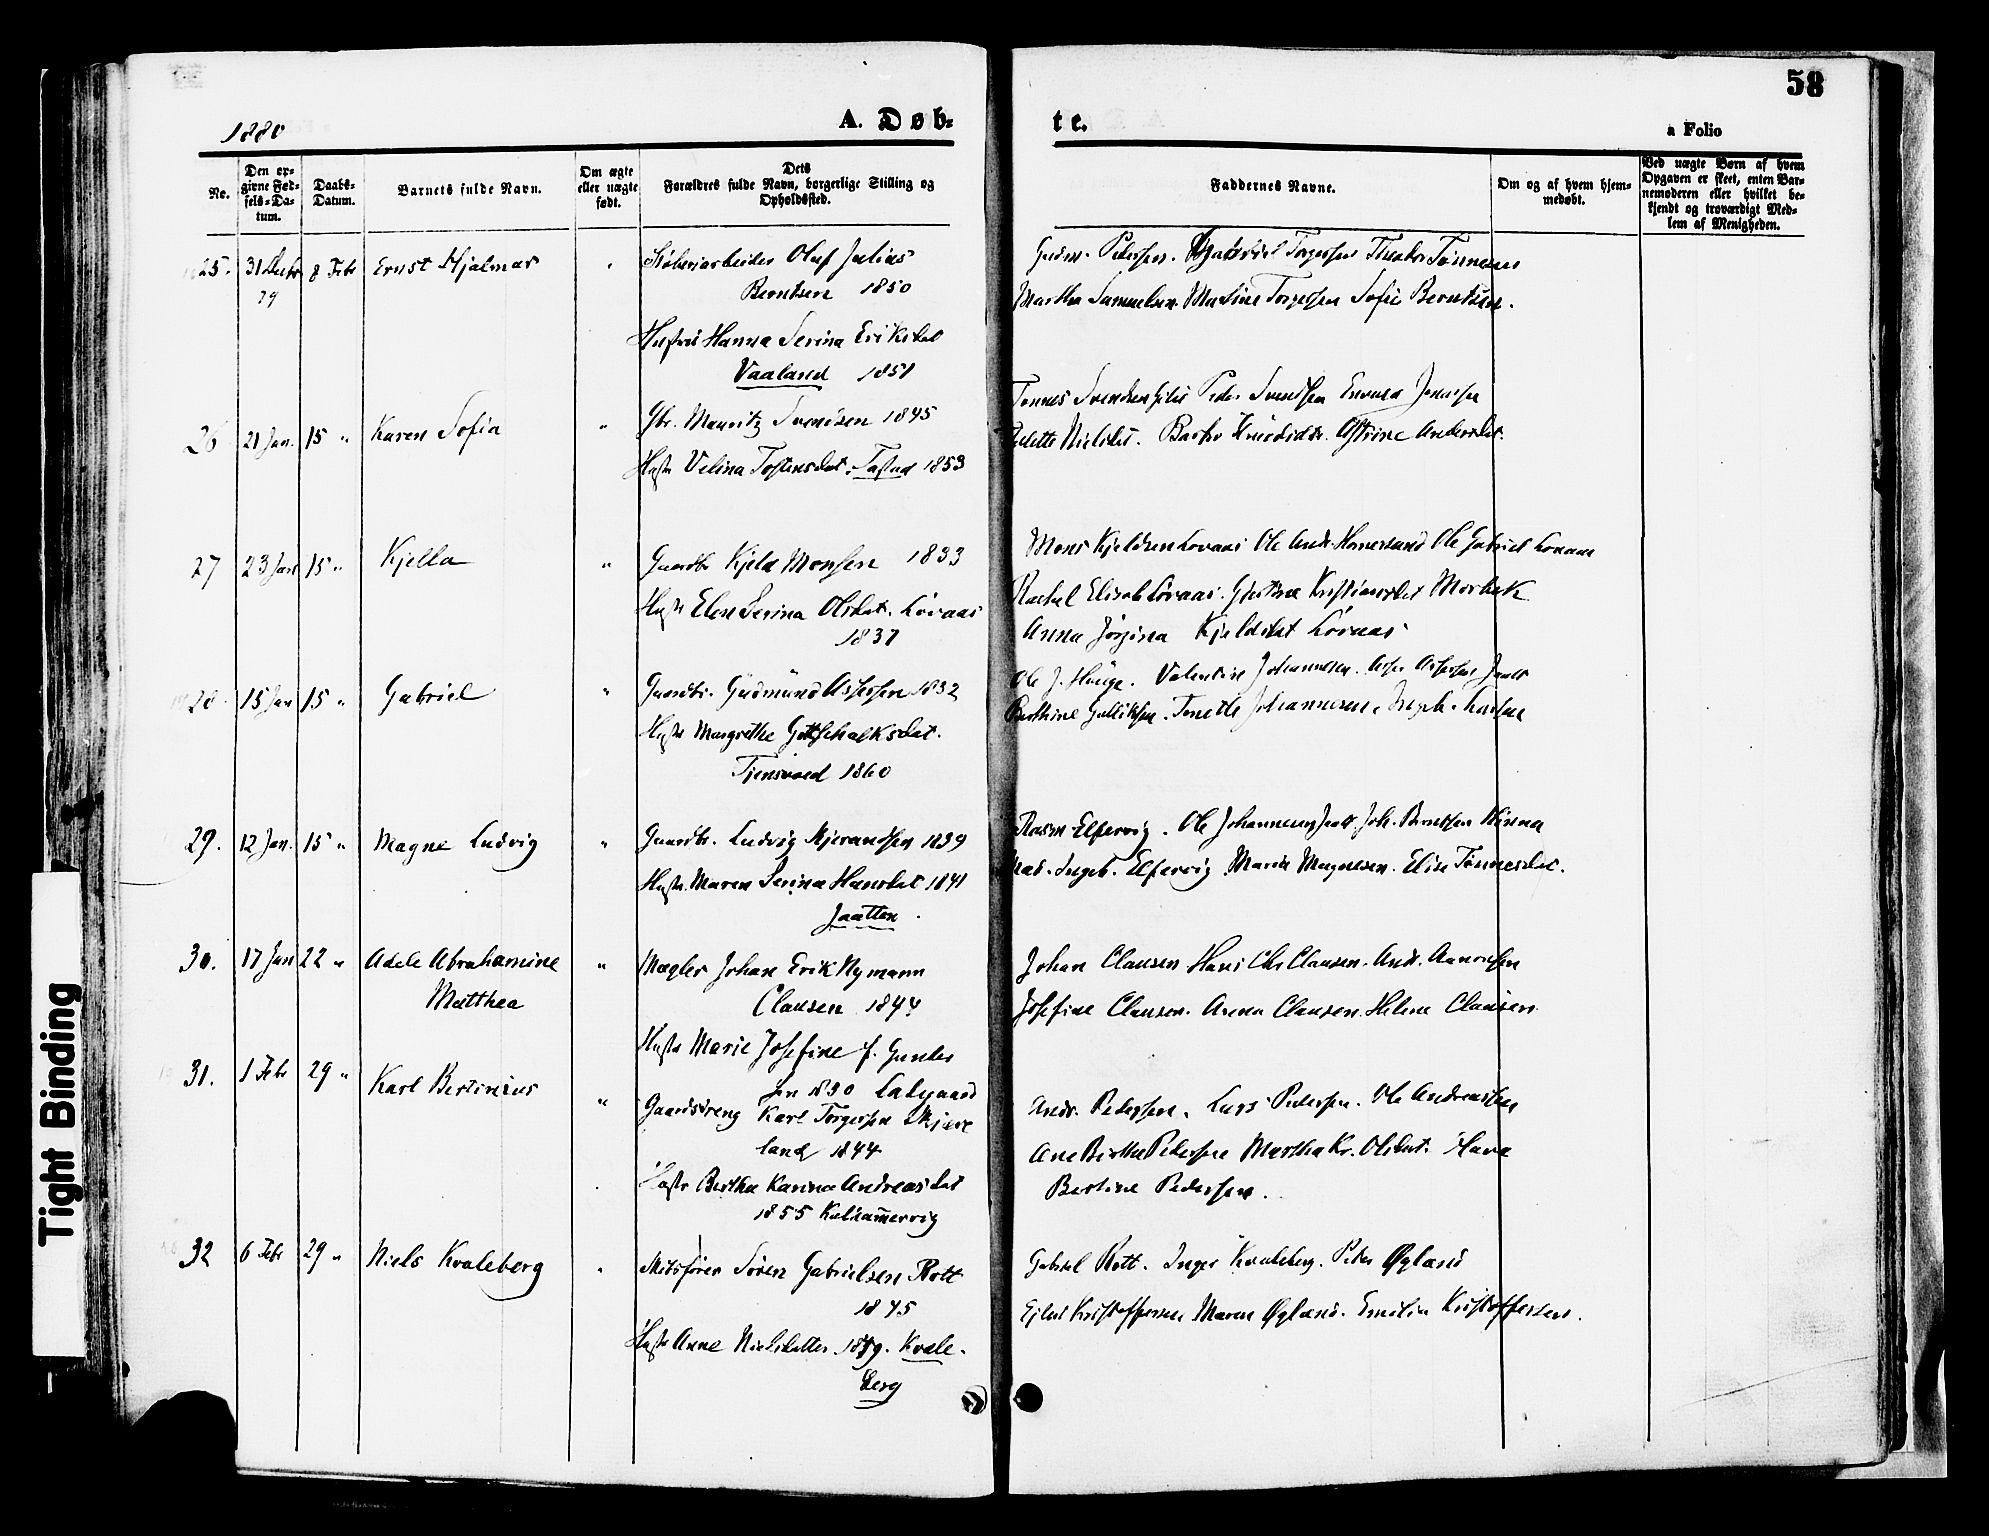 58
1880
A. Døb-
te.
a Folio
No.
Den opgivne Fødsels-Datum.
Daabs-Datum.
Barnets fulde Navn.
Om ægte eller uægte født.
Dets Forældres fulde Navn, borgerlige Stilling og Opholdssted.
Faddernes Navne.
Om og af hvem hjemmedøbt.
Ved uægte Børn af hvem Opgaven er skeet, enten Barnemoderen eller hvilket bekjendt og troværdigt Medlem af Menigheden.
25. 31 Decbr 79 8 Febr Ernst Hjalmar
Oluf Julius
Berntsen 1850
Hustru Hanna Serina Eriksdat
Vaaland 1851
Pedersen. Gabriel Torgersen Tønnesen
Martha Samuelsen. Torgersen Sofie Berntsen.
26 21 Jan. 15 " Karen Sofia "
Gbr. Mauritz Svendsen 1845
Hustr Velina Tostensdat. Tasta 1853
Tønnes Svendsen Peder Svendsen Emma Jonassen
Nielsdt. Andersdat.
27 23 Jan 15 " Kjella "
Gaardbr Kjeld Monsen 1833
Hustr Elen Serina Olsdat. Lovaas
1837
Mons Kjeldsen Lovaas Ole Andr. Ole Gabriel Lovaas
Rachel Elisab Lovaas.
Anna Jörgina Kjeldsdat Lovaas
28 15 Jan 15 " Gabriel "
Gaardbr. Gudmund Assersen 1832
Hustr Margrethe Gottschalksdat.
Tjensvold 1860
Ole J. Hauge. Valentin Johannesen. Asser Assersen
Berthine Gulliksen. Tonette Johannesen. Ingeb. Larsen
29. 12 Jan. 15 " Magne Ludvig "
Gaardbr. Ludvig Mjerandsen 1839
Hustr. Maren Serina Hansdat 1841
Jaatten.
Rasm Elfervig. Ole Johannesen Jaatt Joh. Berntsen Hinna
Mad. Ingeb. Elfervig Maria Magnesen. Elise Tønnesdat.
30. 17 Jan 22 " Adele Abrahamine "
Matthea
Mægler Johan Erik Nymann
Clausen 1844
Hustr Marie Josefine f. Gunder
sen 1830 Ladegaard
Johan Clausen Hans Chr Clausen. Andr. Aanonsen
Josefine Clausen. Anna Clausen. Helene Clausen
31. 1 Febr 29 " Karl Bertinius "
Gaardsdreng Karl Torgersen Skjæve
land 1844
Hustr Bertha Karina Andreasdat
1855 Kalhammervig
Andr. Pedersen. Lars Pedersen. Ole Andreassen
Ane Birthe Pedersen Martha Kr. Olsdat. Hana
Bertine Pedersen.
32 6 Febr 29 " Niels Kvaleberg "
Skibsfører Sören Gabrielsen Rott
1845
Hustr Anne Nielsdatter. Kvale-
berg
Gabriel Rott. Inger Kvaleberg. Peder Øgland
Ejlert Kristoffersen Maren Øgland. Emilie Kristoffersen.
Tight Binding